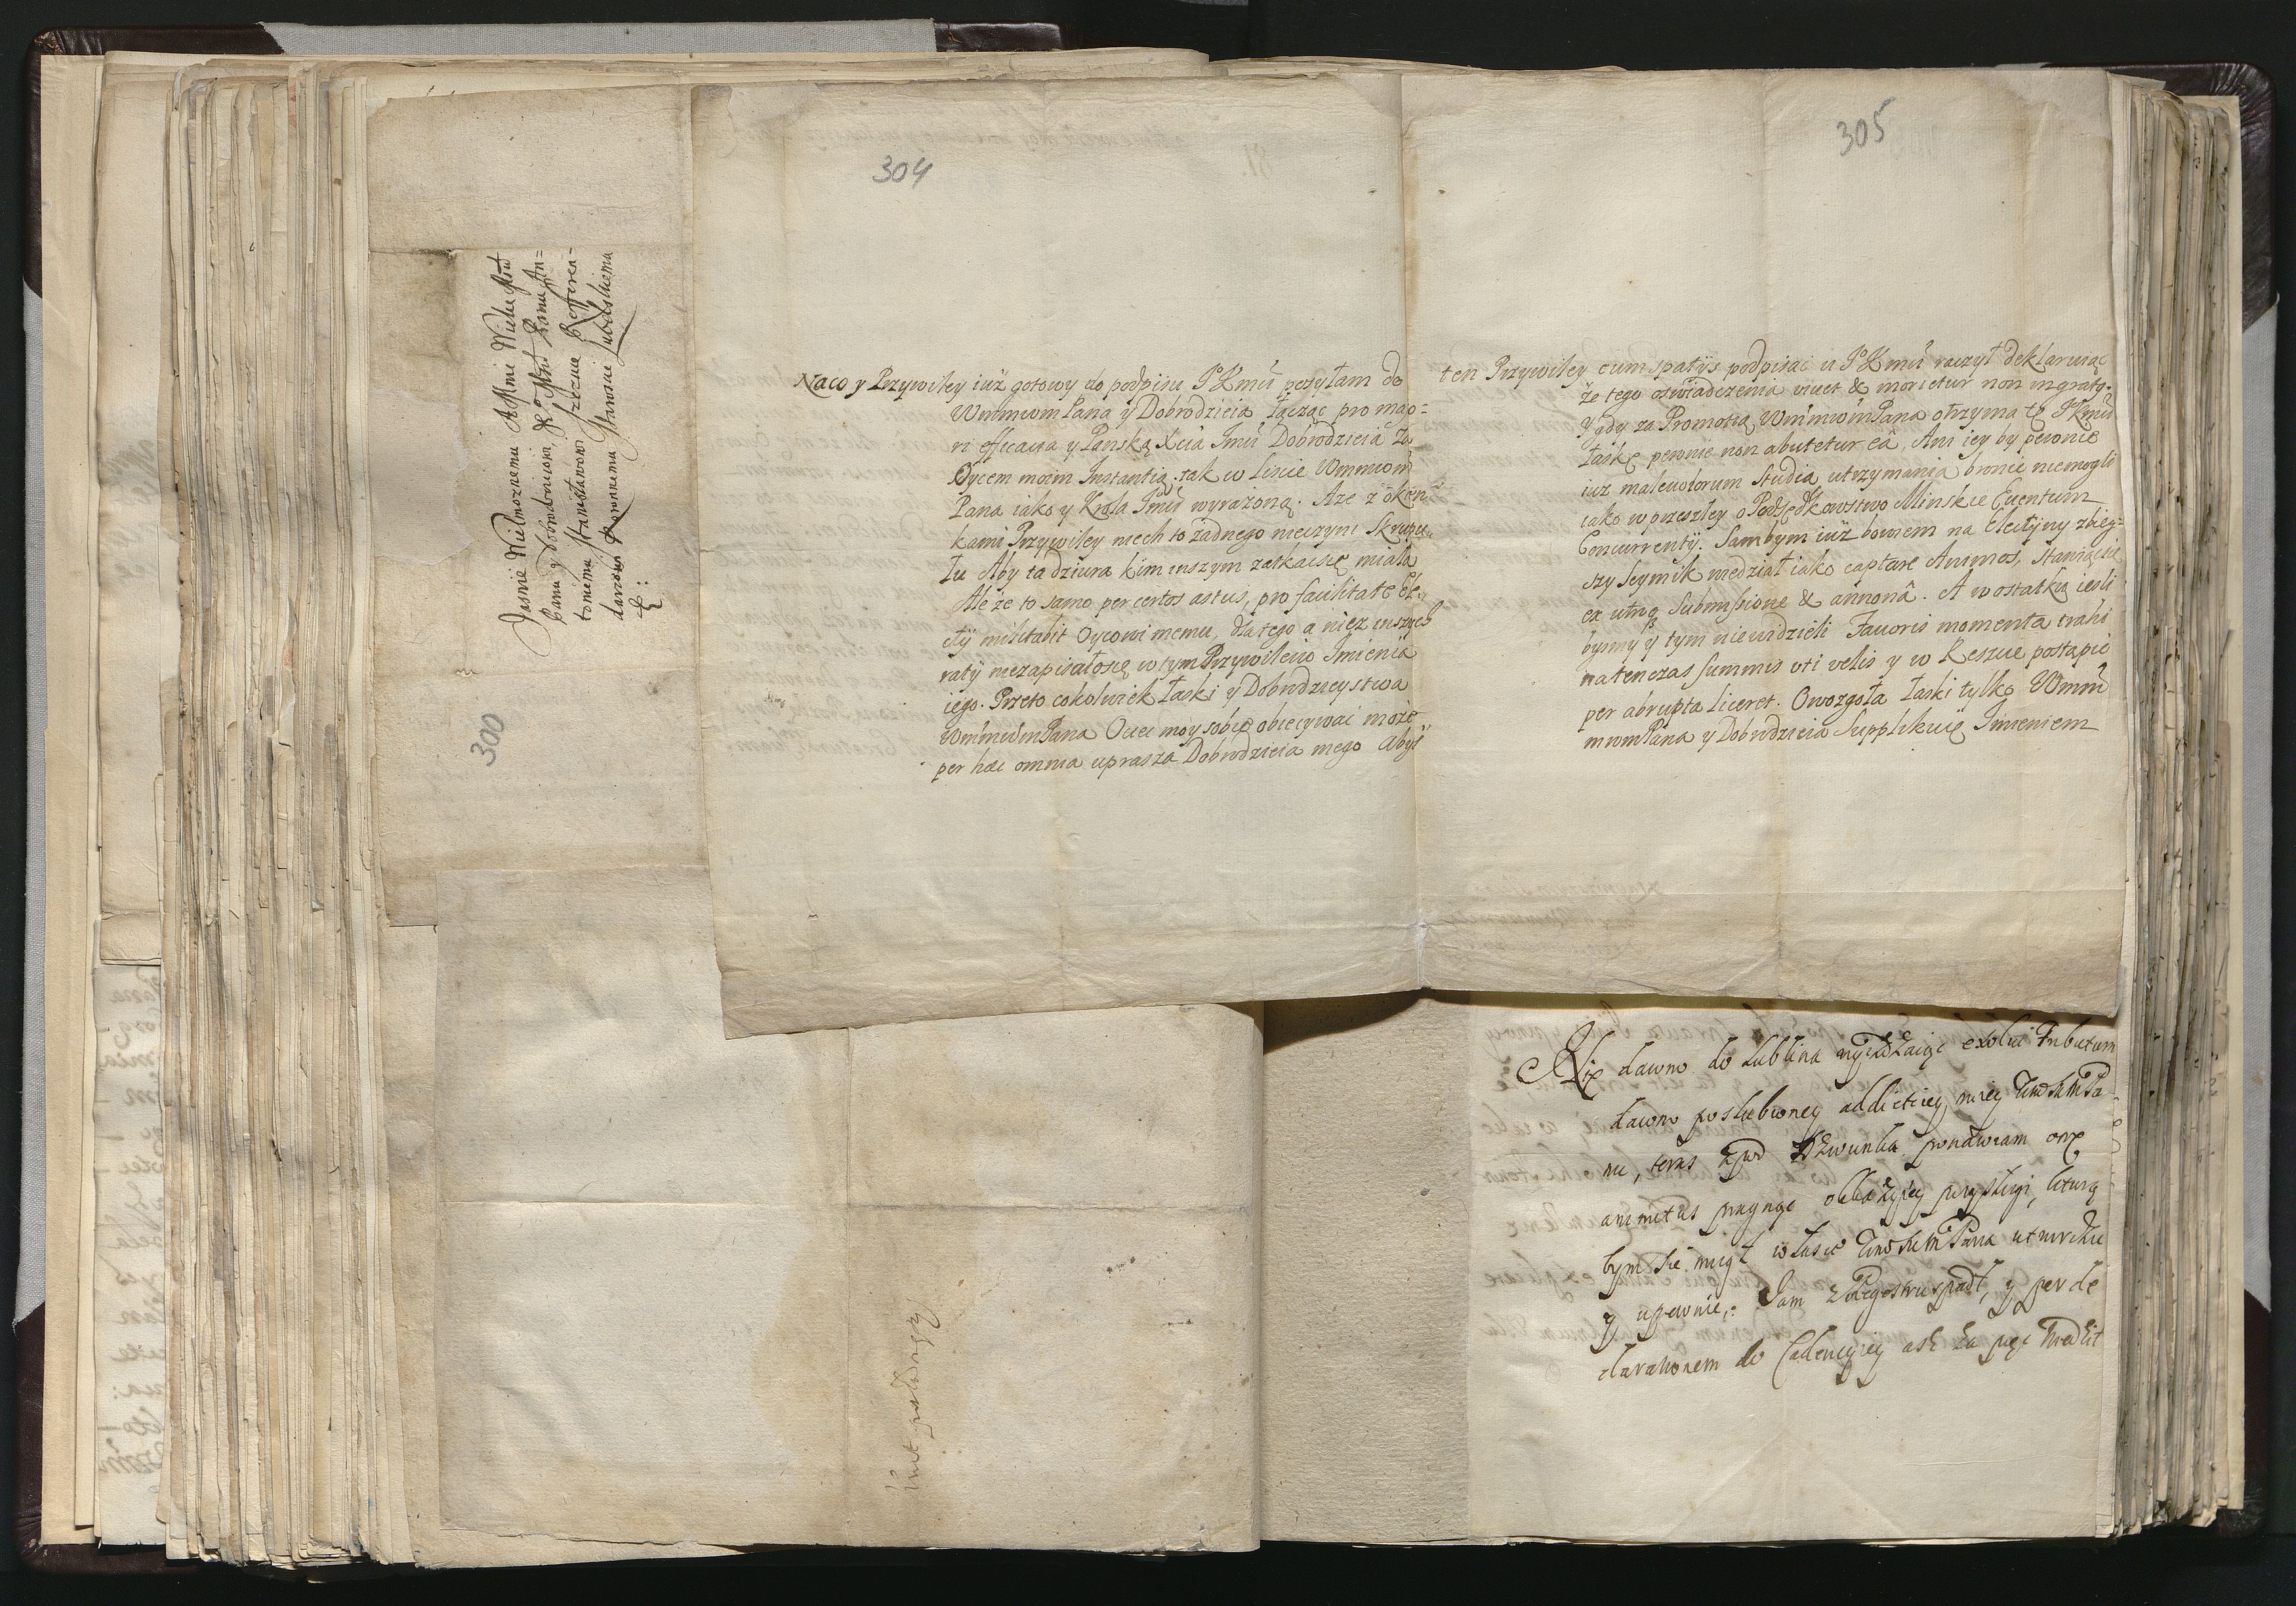 Jasnie Wielmoznemu A Mnie Wielce Mśćiwemu
Panu y Dobrodzieiowi, Je° Mśći Panu An=
toniemu Stanisławowi Szczuce Referen=
darzowi Koronnemu Staroscie Lubelskiemu
&:
300
304
Naco y Przywiley iuż gotowy do podpisu JKmći posyłam do
WmmwmPana y Dobrodzieia łącząc pro mag=
ri efficacia y Panską Xcia Jmći Dobrodzieia za
Oycem moim Instantią. tak w liście Wmmwm
Pana iako y Krola Jmći wyrażoną. Aże z oken=
kami Przywiley niech to żadnego nieczyni Skrupu=
łu Aby ta dziura kim inszym zatkać się miała
Ale że to samo per certos astus, pro facilitate Ele=
ctij militabit Oycowi memu, dla tego a niez inszych
ratij niezapisało się w tym Przywileiu Imienia
iego. Przeto cokolwiek łaski y Dobrodzieystwa
WmmwmPana Ociec moy sobie obiecywać może
per haec omnia uprasza Dobrodzieia mego Abyś
305
ten Przywiley cum spatijs podpisać u JKmći raczył deklaruiąc
że tego oświadczenia vivet & morietur non ingratg.
Y gdy za Promotią WmmwmPana otrzyma tę JKmći
łaskę pewnie non abutetur eâ, Ani iey by pewnie
iuż malevolorum studia utrzymania bronić niemogli
iako w przeszley o Podsędkowstwo Minskie Eventum
Concurrentij. Sam bym iuż bowiem na Electijny zbieg=
szy Seymik wiedział iako captare Animos, stawiąc się
ex utrâq Submissione & annonâ. A w ostatku iesli
bysmy y tym nie widzieli Favoris momenta trahi
natenczas summis uti velis y w Reszcie postąpić
per abrupta liceret. Owozgoła łaski tylko Wmm
mwmPana y Dobrodzieia Supplikuię Imieniem
Nie dawno do Lublina wyieżdzaiąc exolvi Tributum
dawno poslubioney addictiey moiey WmsmmPa=
nu, teraz zpod ponawiam one
animitus pragnąc okazyiey przysługi, ktorą
bym się mogł w łasce Pana utwierdzić
y upewnić: Sam y per de
clarationem do Cadencyiey